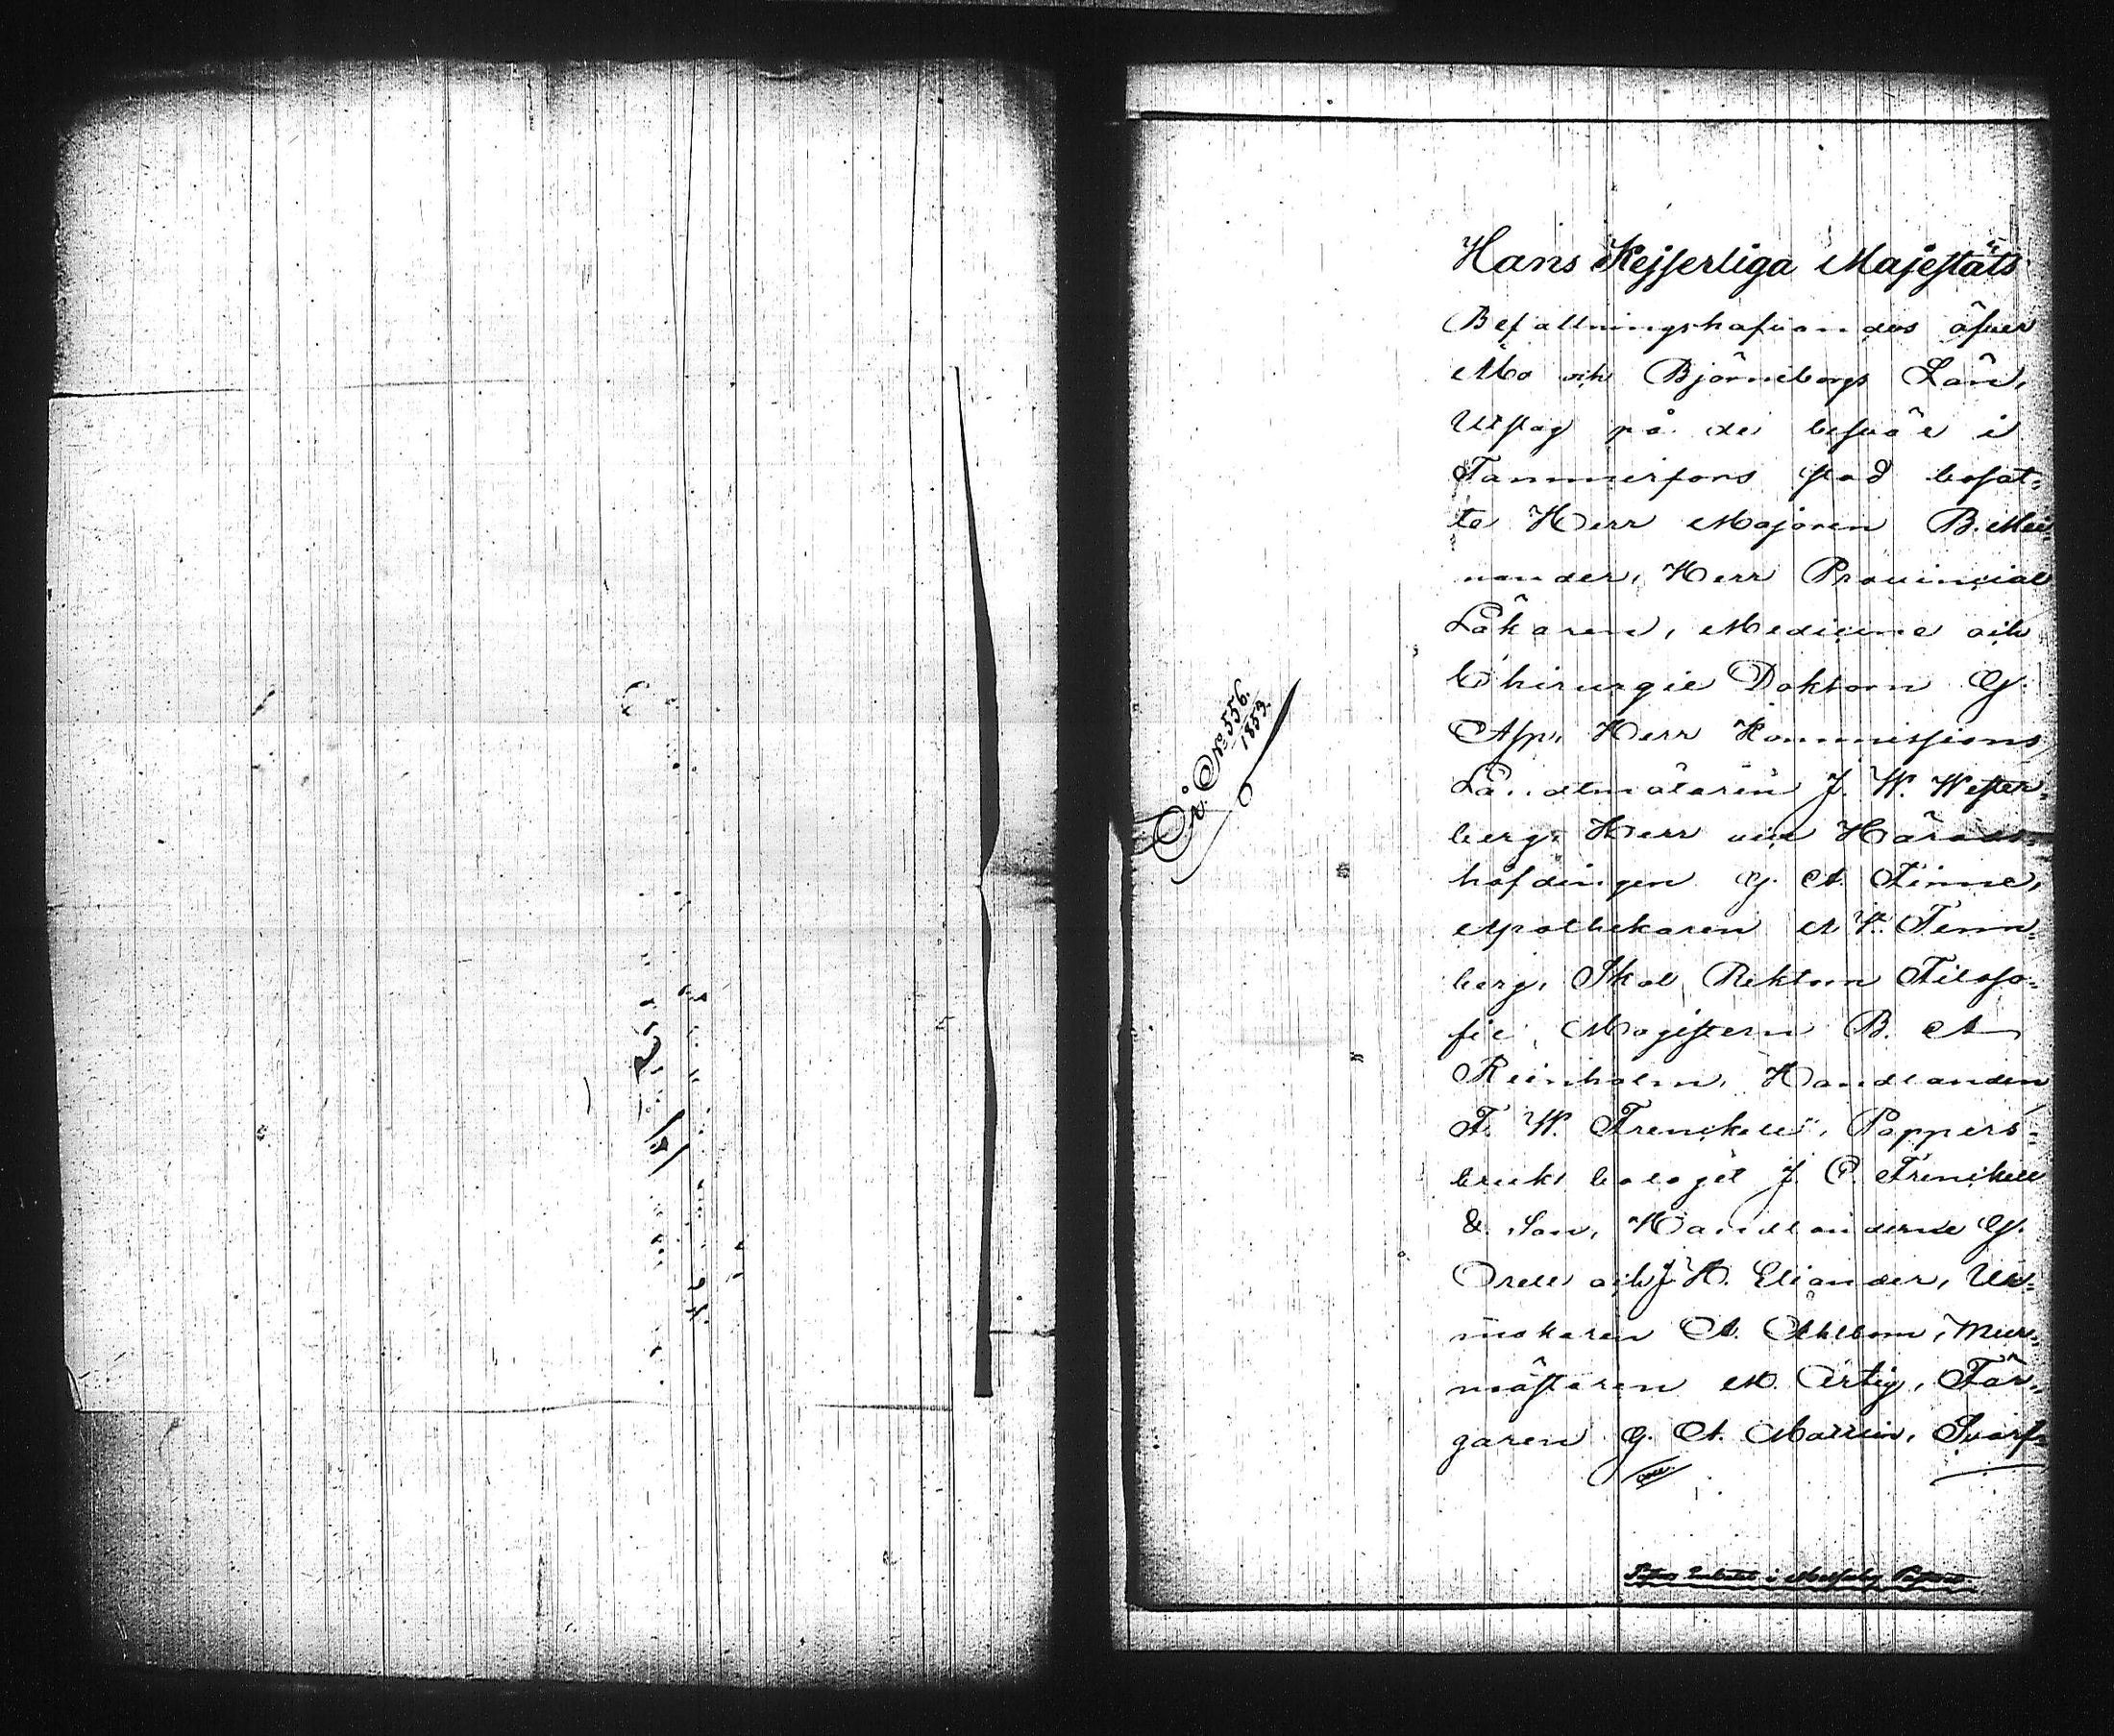 Hans Kejserliga Majestäts
Befallningshafvandes öfver
Åbo och Björneborgs Län,
Utslag på de besvär i
Tammerfors stad bosat-
te Herr Majoren B. Mei-
nander, Herr Provincial
Läkaren, Medicine och
Chirurgie Doktorn G.
Asp, Herr Kommissions
Landtmätaren J. W. Wester-
berg, Herr vice Härads-
höfdingen G. A. Finne,
Apothekaren A W. Tenn-
berg, Skol Rektorn Filoso-
fie Magistern B. A
Reinholm, Handlanden
F. W. Frenckell, Pappers-
bruks bolaget J. C. Frenckell
& Son, Handlanderne G.
Orell och J. H. Eliander, Ur-
makaren A. Åhlbom, Mur-
mästaren M. Artig, Fär-
garen G. A. Mallin, Svarf-
No 556.
1859